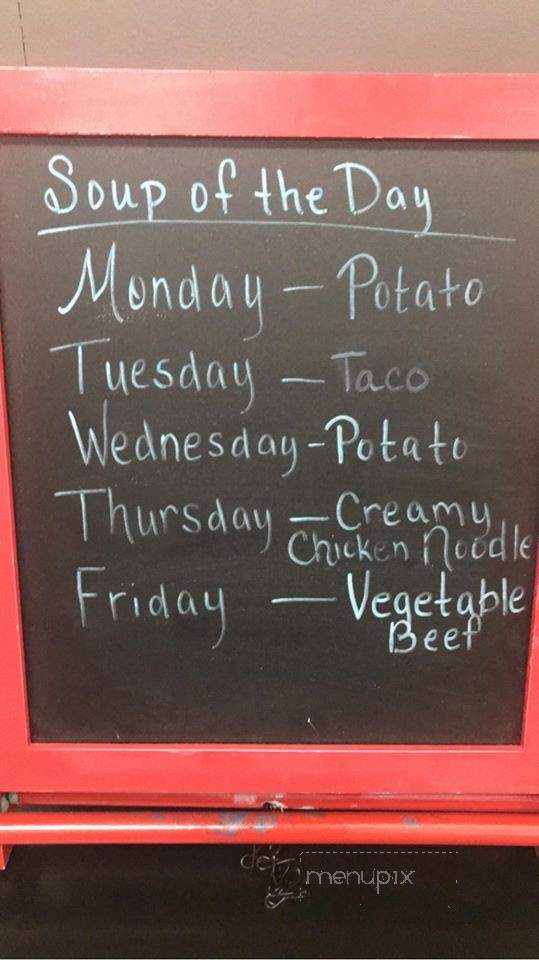 Soup of the Day
Monday – Potato
Tuesday – Taco
Wednesday - Potato
Thursday – Creamy
Chicken Noodle
Friday – Vegetable
Beef
menupix